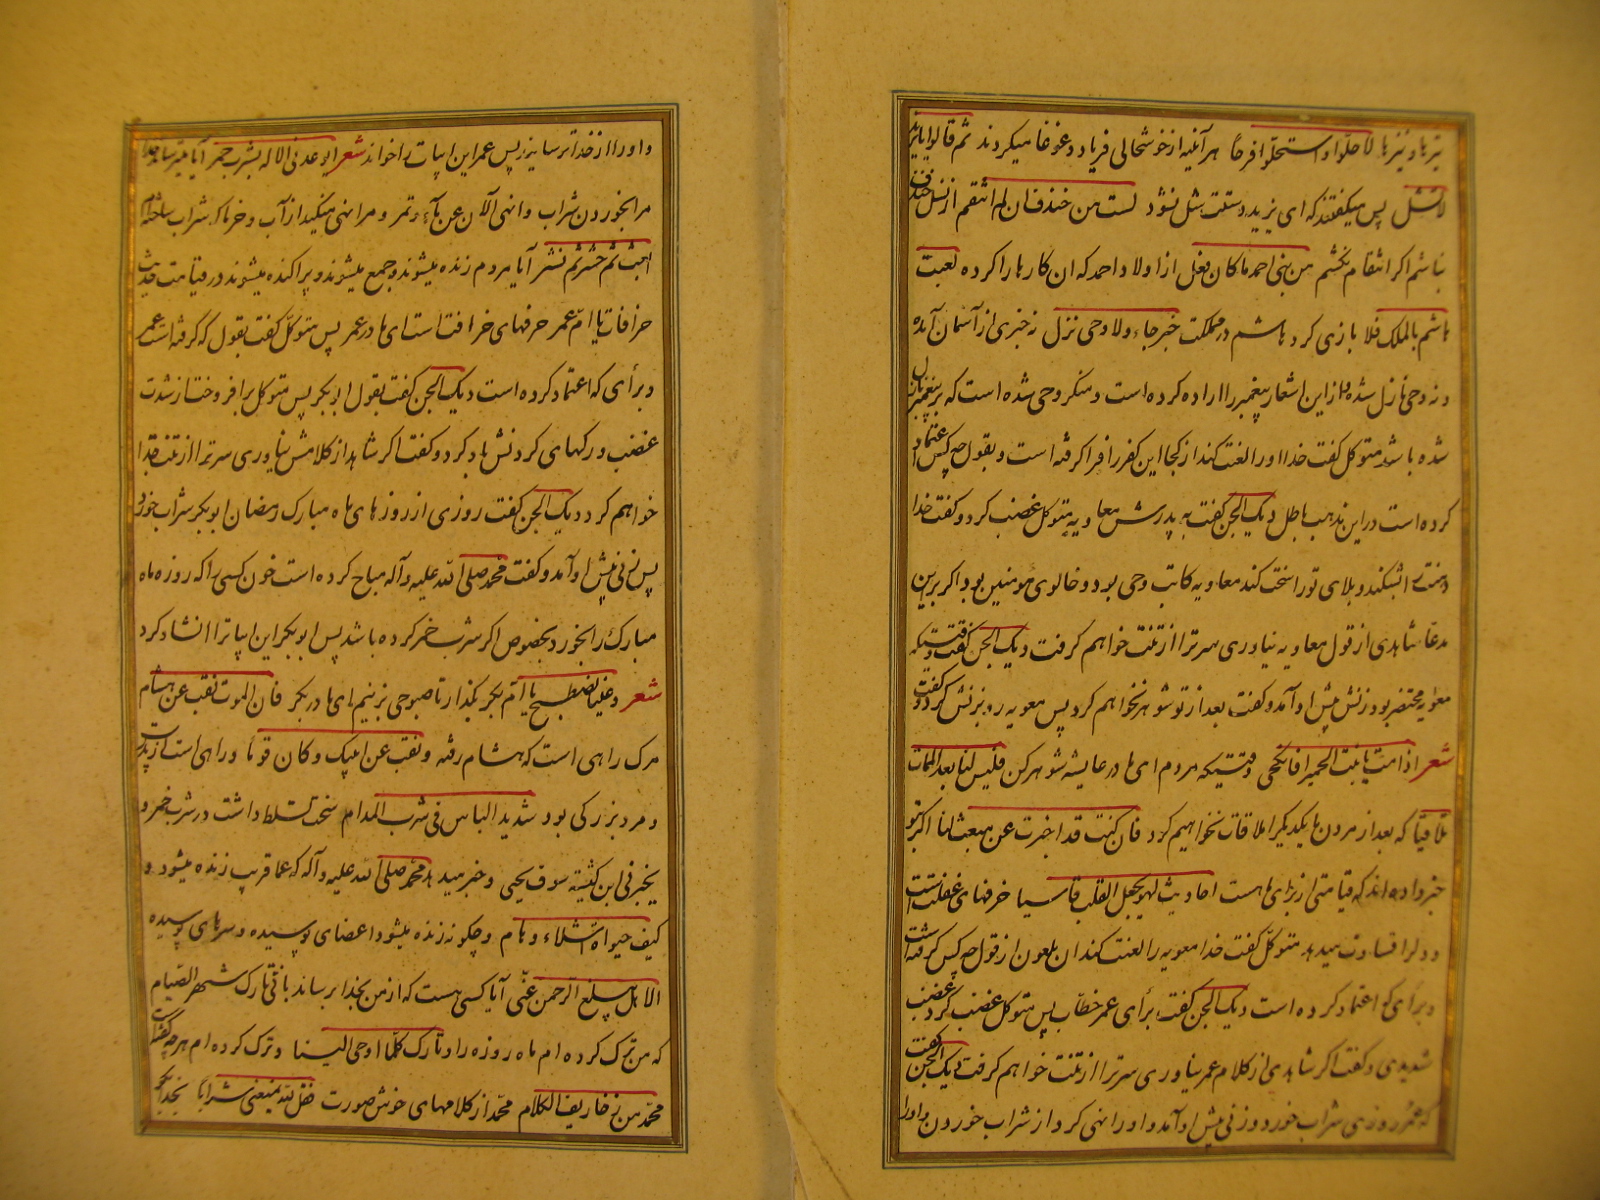 نیزها و نیزها لاهلّوا و استهلّوا فرحاً هر آینه از خوشحالی فریاد و غوغا میکردند ثم قالوا یا یزید
لاتشل پس میکفتند که ای یزید دستت شل نشود لست من خندف ان لم انتقم از نسل خندف
نباشم اکر انتقام نکشم من بنی احمد ما کان فعل از اولاد احمد که ان کارها را کرده لعبت
هاشم بالملک فلا بازی کرد هاشم در مملکت خبر جاء ولا وحی نزل نه خبری از آسمان آمده
و نه وحی نازل شده از این اشعار پیغمبر را اراده کرده است و منکر وحی شده است که بر پیغمبر نازل
شده باشد متوکل کفت خدا او را لعنت کند از کجا این کفر را فرا کرفته است و بقول چه کس اعتماد
کرده است در این مذهب باطل دیک الجن کفت به پدرش معاویه متوکل غضب کرد و کفت خدا
دهنت را بشکند و بلای تو را سخت کند معاویه کاتب وحی بود و خالوی مومنین بود اکر بر این
مدعا شاهدی از قول معاویه نیاوری سر ترا از تنت خواهم کرفت دیک الجن کفت وقتیکه
معویه محتضر بود زنش پیش او آمد و کفت بعد از تو شوهر نخواهم کرد پس معویه رو بزنش کرد و کفت
شعر اذا مت یا بنت الحمیرا فانکحی وقتیکه مردم ای هادر عایشه شوهر کن فلیس لنا بعد الممات
تلاقیا که بعد از مردن ما یکدیکر را ملاقات نخواهیم کرد فان کنت قد اخبرت عن مبعث لنا اکر تو
خبر داده اند که قیامتی از برای ما هست احادیث لهو یجعل القلب قاسیا حرفهای غفلت است
و دل را قساوت میدهد متوکل کفت خدا معویه را لعنت کند ان ملعون از قول چه کس کرفته است
و برای که اعتماد کرده است دیک الجن کفت برأی عمر خطاب پس متوکل غضب کرد غضب
شدیدی و کفت اکر شاهدی از کلام عمر نیاوری سر ترا از تنت خواهم کرفت دیک الجن کفت
که عمر روزی شراب خورد و زنی پیش او آمد و او را نهی کرد از شراب خوردن و او را
و او را از خدا ترسانید پس عمر این ابیات را خواند شعر ایوعدنی الاله بشرب خمر آیا میترساند خدا
مرا بخوردن شراب و انهی الآن عن ماء و تمر و مرا نهی میکنید از آب و خرما که شراب باشد
ابعث ثم حشر ثم نشر آیا مردم زنده میشوند و جمع میشوند و پراکنده میشوند در قیامت حدیث
خرافات یا ام عمر حرفهای خرافت است ای مادر عمر پس متوکل کفت بقول که کرفته است عمر
و برأی که اعتماد کرده است دیک الجن کفت بقول ابوبکر پس متوکل بر افروخت از شدت
غضب و رکهای کردنش باد کرد و کفت اکر شاهد از کلامش نیاوری سر ترا از تنت جدا
خواهم کرد دیک الجن کفت روزی از روزهای ماه مبارک رمضان ابوبکر شراب خورد
پس زنی پیش او آمد و کفت محمد صلی الله علیه و آله مباح کرده است خون کسی را که روزه ماه
مبارک را بخورد بخصوص اکر شرب خمر کرده باشد پس ابوبکر این ابیات را انشاد کرد
شعر دعینا نصطبح یا ام بکر بکذار تا صبوحی بزنیم ای مادر بکر فان الموت نقب عن هشام
مرک راهی است که بهشام رفته و نقب عن ابیک و کان قوما و راهی است از پدرت
و مرد بزرکی بود شدید الباس فی شرب المدام سخت تسلط داشت در شرب خمر و
یخبرنی ابن کبشة سوف نحیی و خبر میدهد محمد صلی الله علیه و آله که عما قریب زنده میشود و
کیف حیواة اشلاء و هام و چکونه زنده میشود اعضای پوسیده و سرهای پوسیده
الا هل مبلغ الرحمن عنّی آیا کسی هست که از من بخدا برساند بانّی تارک شهر الصیام
که من ترک کرده ام ماه روزه را و تارک کلما اوحی الینا و ترک کرده ام هر چه کفته است
محمد من زخاریف الکلام محمد از کلامهای خوش صورت فقل لله یمنعنی شرابا بخدا بکو